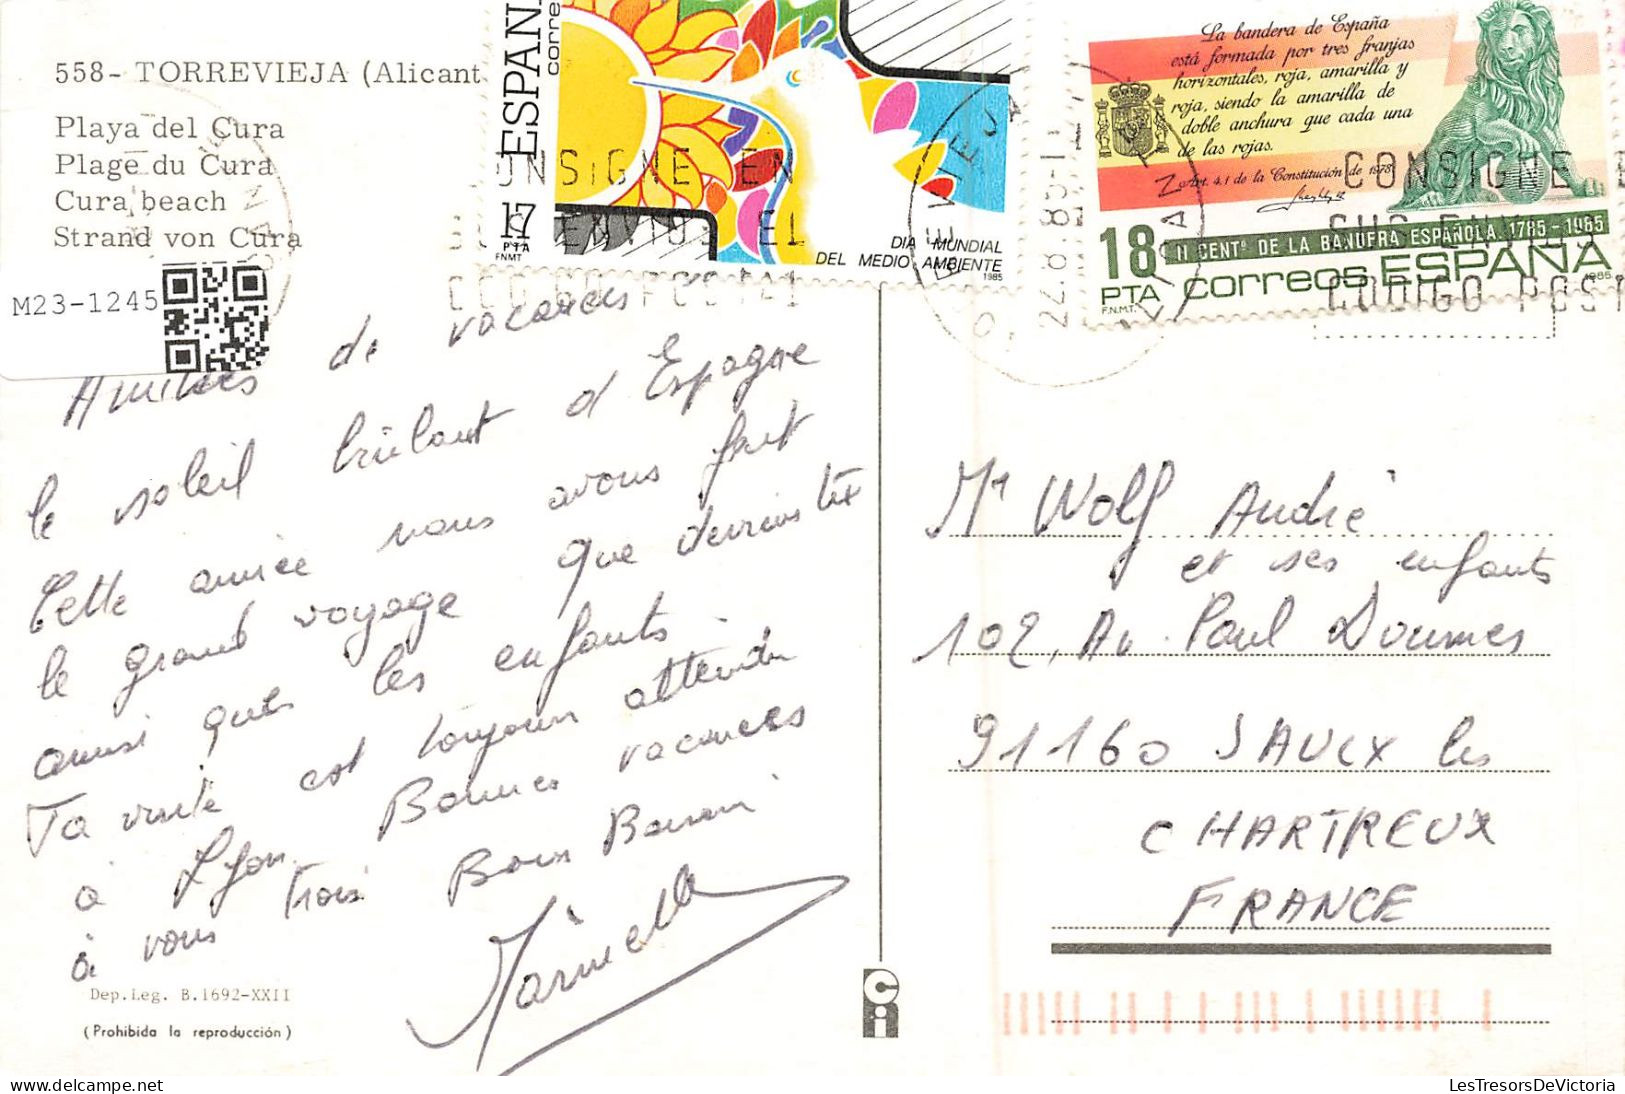 558- TORREVIEJA (Alicant
Playa del Cura
Plage du Cura
Cura beach
Strand von Cura
M23-1245
ESPAÑ
corre
17
PTA
FNMT
DIA MUNDIAL
DEL MEDIO AMBIENTE
1985
La bandera de España
está formada por tres franjas
horizontales, roja, amarilla y
roja, siendo la amarilla de
doble anchura que cada una
de las rojas.
Art. 4.1 de la Constitución de 1978
18
PTA
F.N.M.T.
II CENTº DE LA BANDERA ESPAÑOLA. 1785-1985
correos ESPAÑA
1985
ONSIGNE EN
SUS ENVIOS EL
CODIGO POSTAL
22.8.85-1
CONSIGNE E
SUS ENVI
CODIGO POST
Amitiés de vacances
le soleil brûlant d'Espagne
Cette année nous avons fait
le grand voyage que
ainsi que les enfants.
Ta visite est toujours attendu
à Lyon. Bonnes vacances
à vous trois Bons
Dep. Leg. B.1692-XXII
(Prohibida la reproducción)
Ci
Mr Wolf André
et ses enfants
102, Av. Paul Doumes
91160 SAULX les
CHARTREUX
FRANCE
LesTresorsDeVictoria